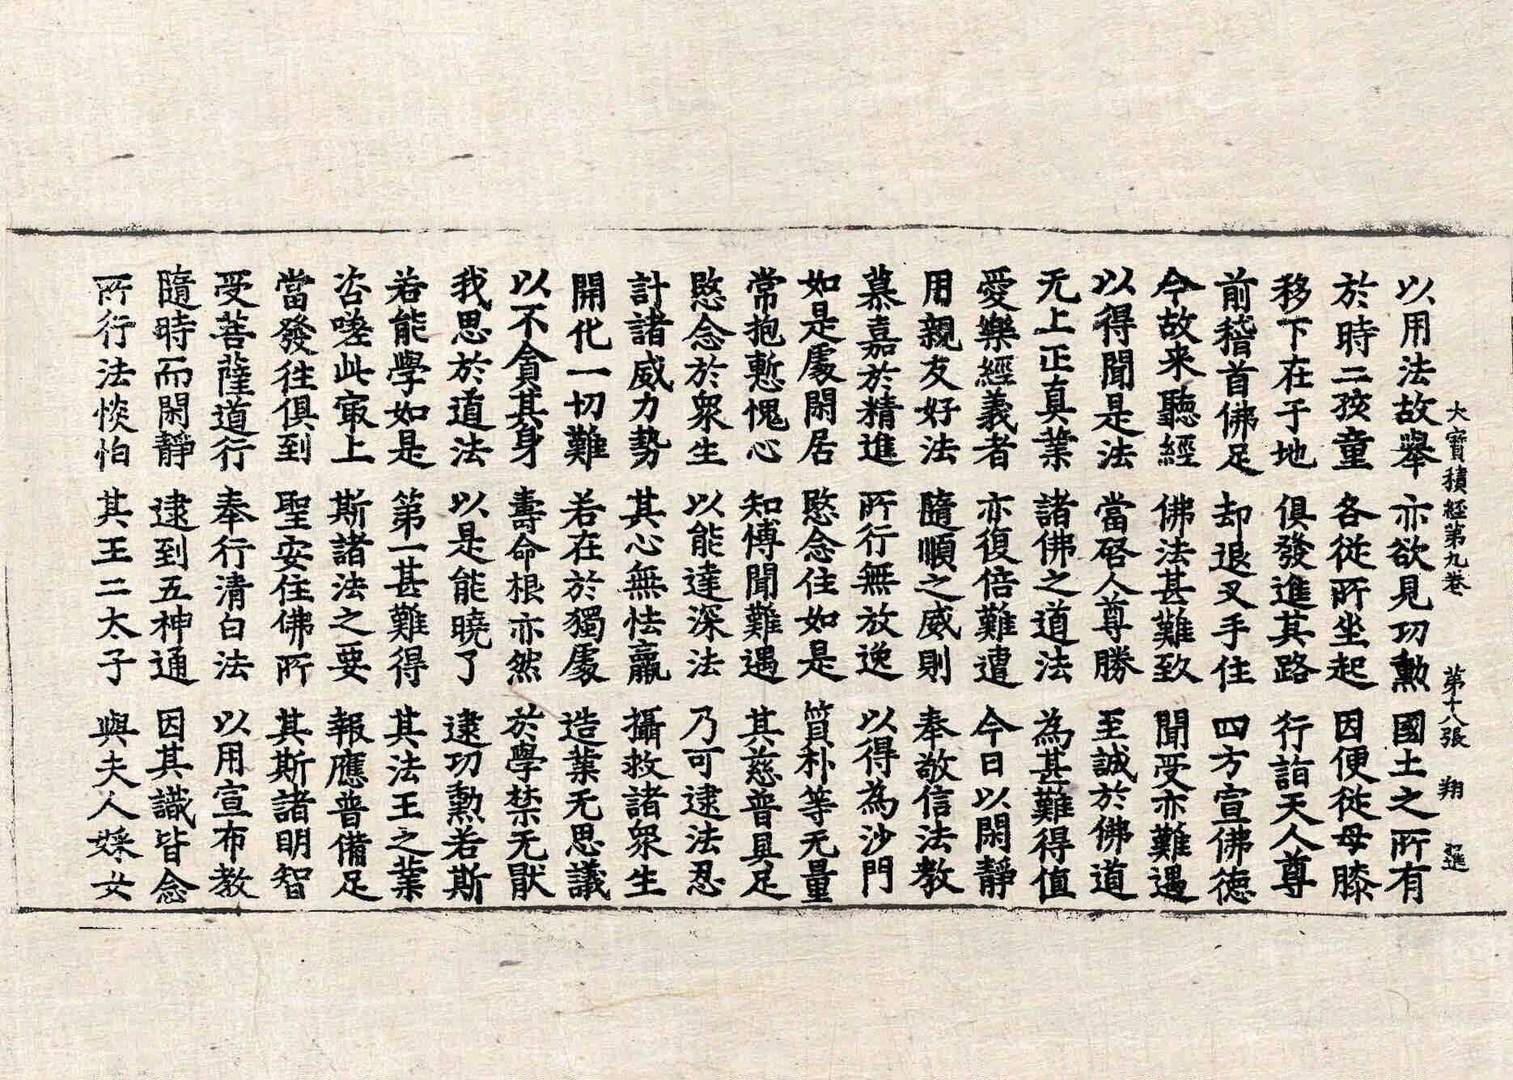 大寶積經第九卷 第十八張 翔
以用法故舉 亦欲見功勲 國土之所有
於時二孩童 各從所坐起 因便從母膝
移下在于地 俱發進其路 行詣天人尊
前稽首佛足 却退叉手住 四方宣佛德
今故来聽經 佛法甚難致 聞受亦難遇
以得聞是法 當啓人尊勝 至誠於佛道
无上正真業 諸佛之道法 為甚難得值
愛樂經義者 亦復倍難遭 今日以閑靜
用親友好法 隨順之威則 奉敬信法教
慕嘉於精進 所行無放逸 以得為沙門
如是處閑居 愍念住如是 質朴等无量
常抱慙愧心 知博聞難遇 其慈普具足
愍念於眾生 以能達深法 乃可逮法忍
計諸威力勢 其心無怯羸 攝救諸眾生
開化一切難 若在於獨處 造業无思議
以不貪其身 壽命根亦然 於學禁无猒
我思於道法 以是能曉了 逮功勲若斯
若能學如是 第一甚難得 其法王之業
咨嗟此㝡上 斯諸法之要 報應普備足
當發往俱到 聖安住佛所 其斯諸明智
受菩薩道行 奉行清白法 以用宣布教
隨時而閑靜 逮到五神通 因其識皆念
所行法惔怕 其王二太子 與夫人婇女